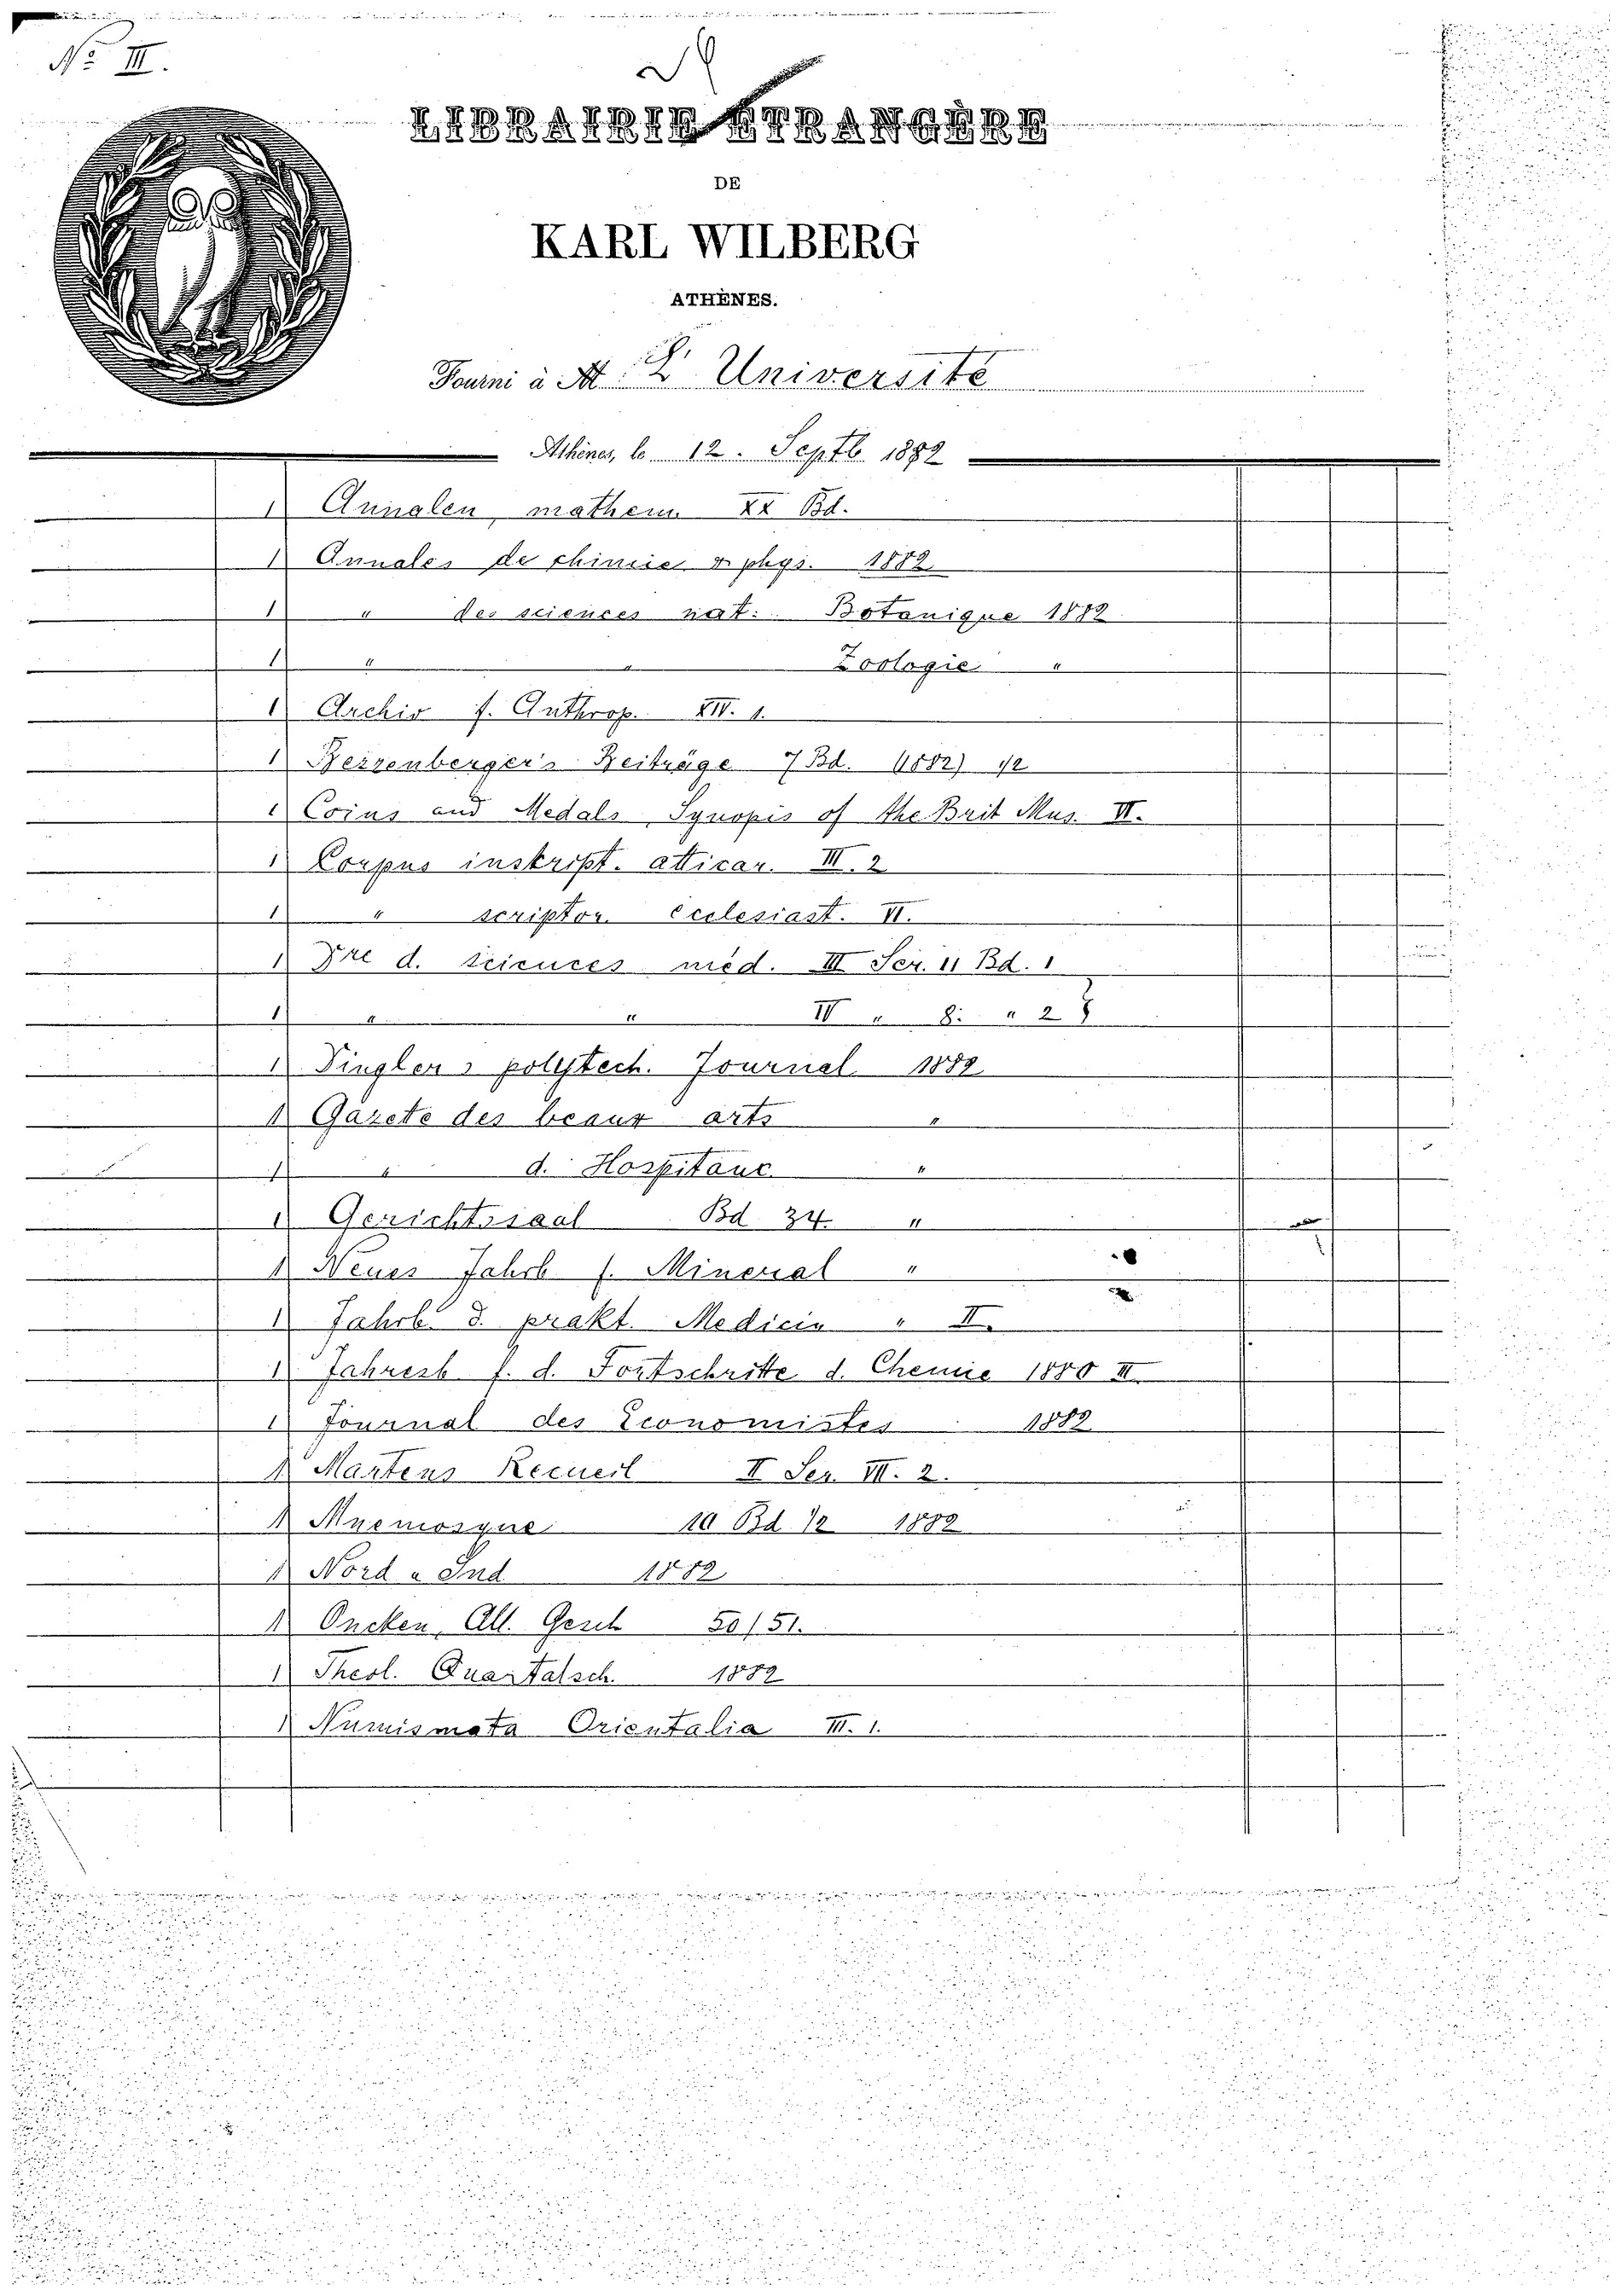 No III.
LIBRAIRIE ÉTRANGÈRE
DE
KARL WILBERG
ATHÈNES.
Fourni à M L' Université
Athènes, le 12. Septb 1882
1 Annalen, mathem. XX Bd.
1 Annales de chimie & phys. 1882
1 " des sciences nat: Botanique 1882
1 " " Zoologie "
1 Archiv f. Anthrop. XIV. 1.
1 Bezzenberger's Beiträge 7 Bd. (1882) 1/2
1 Coins and Medals, Synopis of the Brit Mus. VI.
1 Corpus inskript. atticar. III. 2
1 " scriptor. ecclesiast. VI.
1 Dre d. sciences méd. III Ser. 11 Bd. 1
1 " " IV " 8. " 2
1 Dinglers polytech. Journal 1882
1 Gazete des beaux arts "
1 " d. Hospitaux "
1 Gerichtssaal Bd 34. "
1 Neues Jahrb f. Mineral "
1 Jahrb. d. prakt. Medicin " II.
1 Jahresb f. d. Fortschritte d. Chemie 1880 III.
1 Journal des Economistes 1882
1 Martens Recueil II Ser. VII. 2.
1 Mnemosyne 10 Bd 1/2 1882
1 Nord u Süd 1882
1 Oncken, All. Gesch 50/51.
1 Theol. Quartalsch. 1882
1 Numismata Orientalia III. 1.